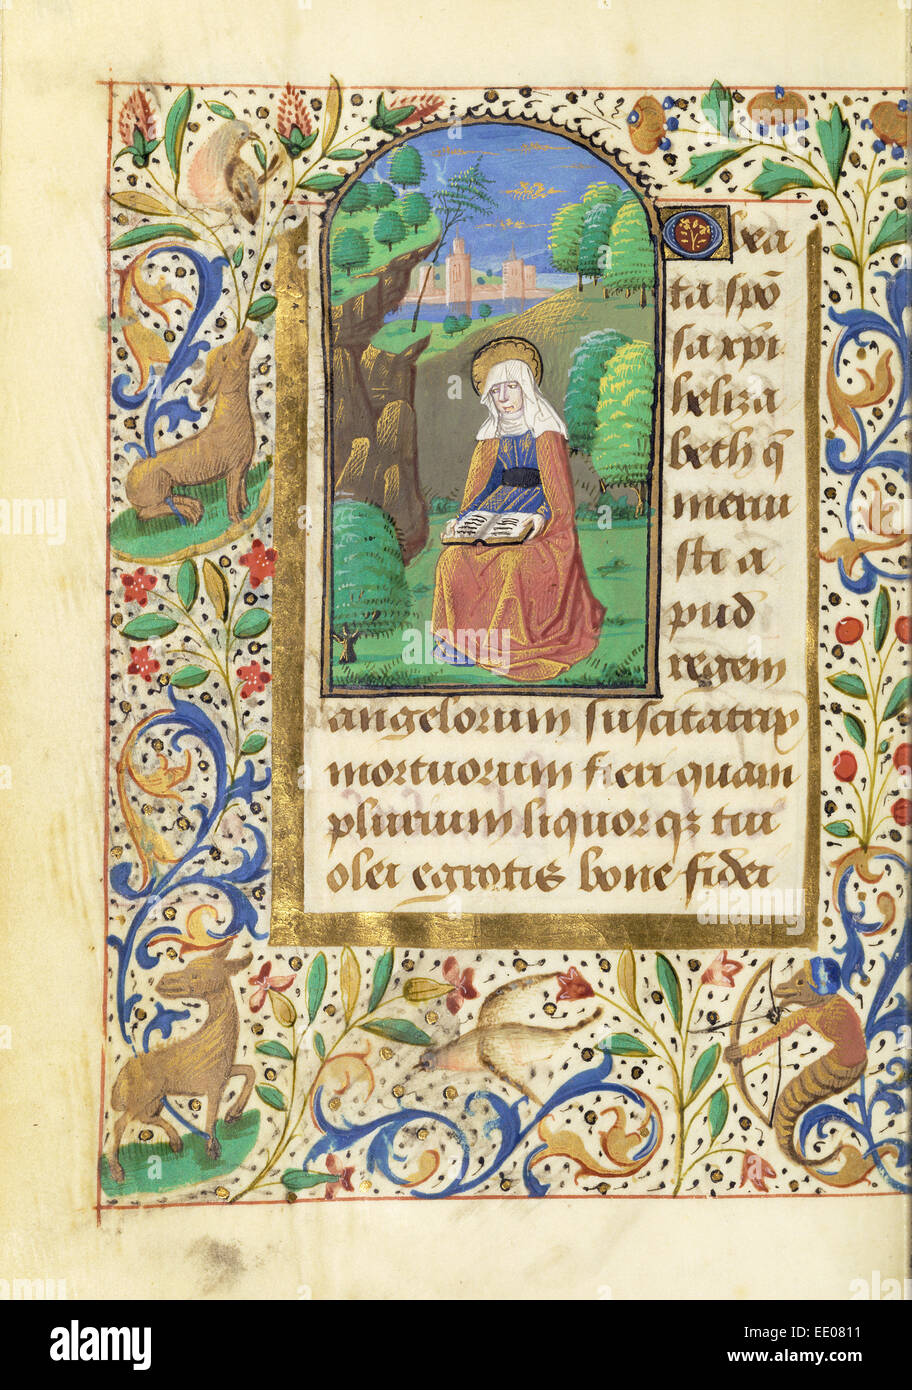 Oxa
ta spō
sa xp̄i
heliza
beth q̄
meriu
isti a
pud
regem
angelorum suscitatrix
mortuorum fieri quam
plurium liquorqꝫ tui
olei egrotis bone fidei
alamy
alamy stock photo
EE0811
www.alamy.com